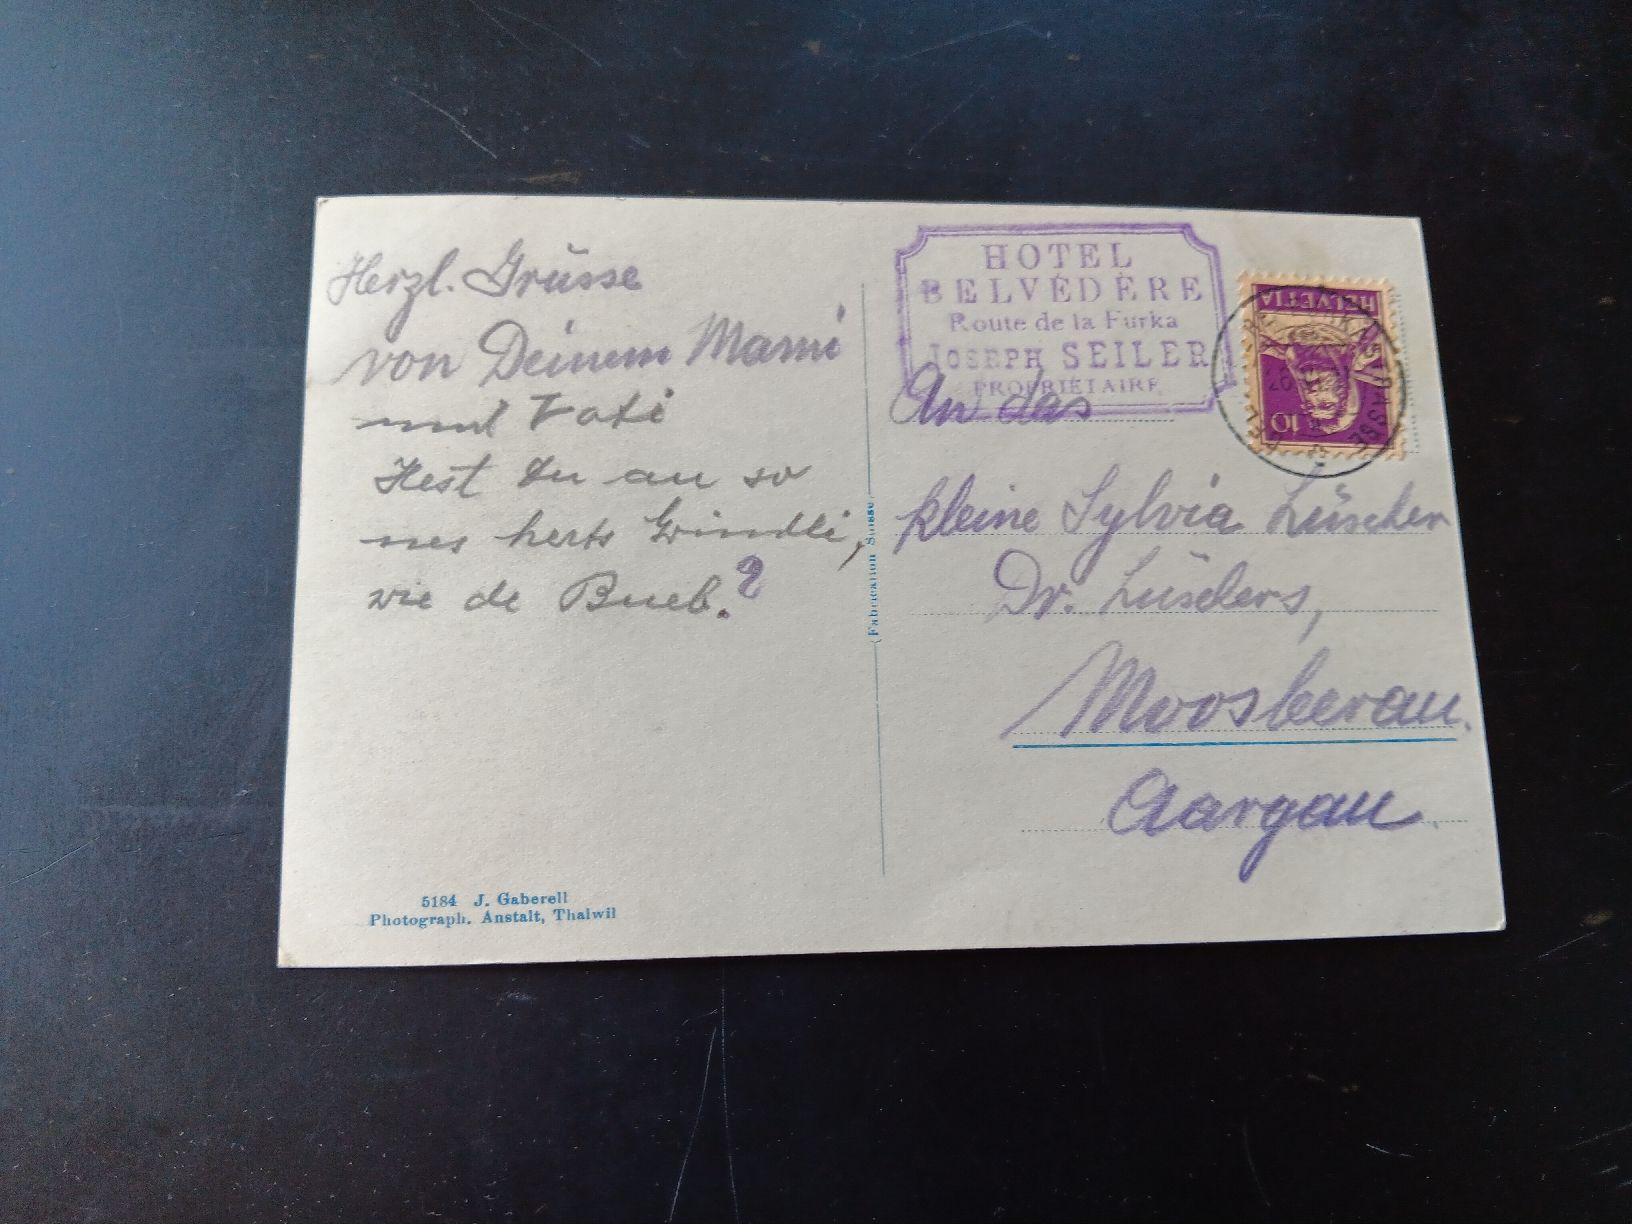 Herzl. Grüsse
von Deinem Mami
und Vati
Hest Du au so
nes herts Grindli,
wie de Bueb.?
5184 J. Gaberell
Photograph. Anstalt, Thalwil
(Fabrication Suisse)
HOTEL
BELVÉDÈRE
Route de la Furka
JOSEPH SEILER
PROPRIÉTAIRE
HELVETIA
10
An das
kleine Sylvia Lüscher
Dr. Lüschers,
Moosleerau.
Aargau.